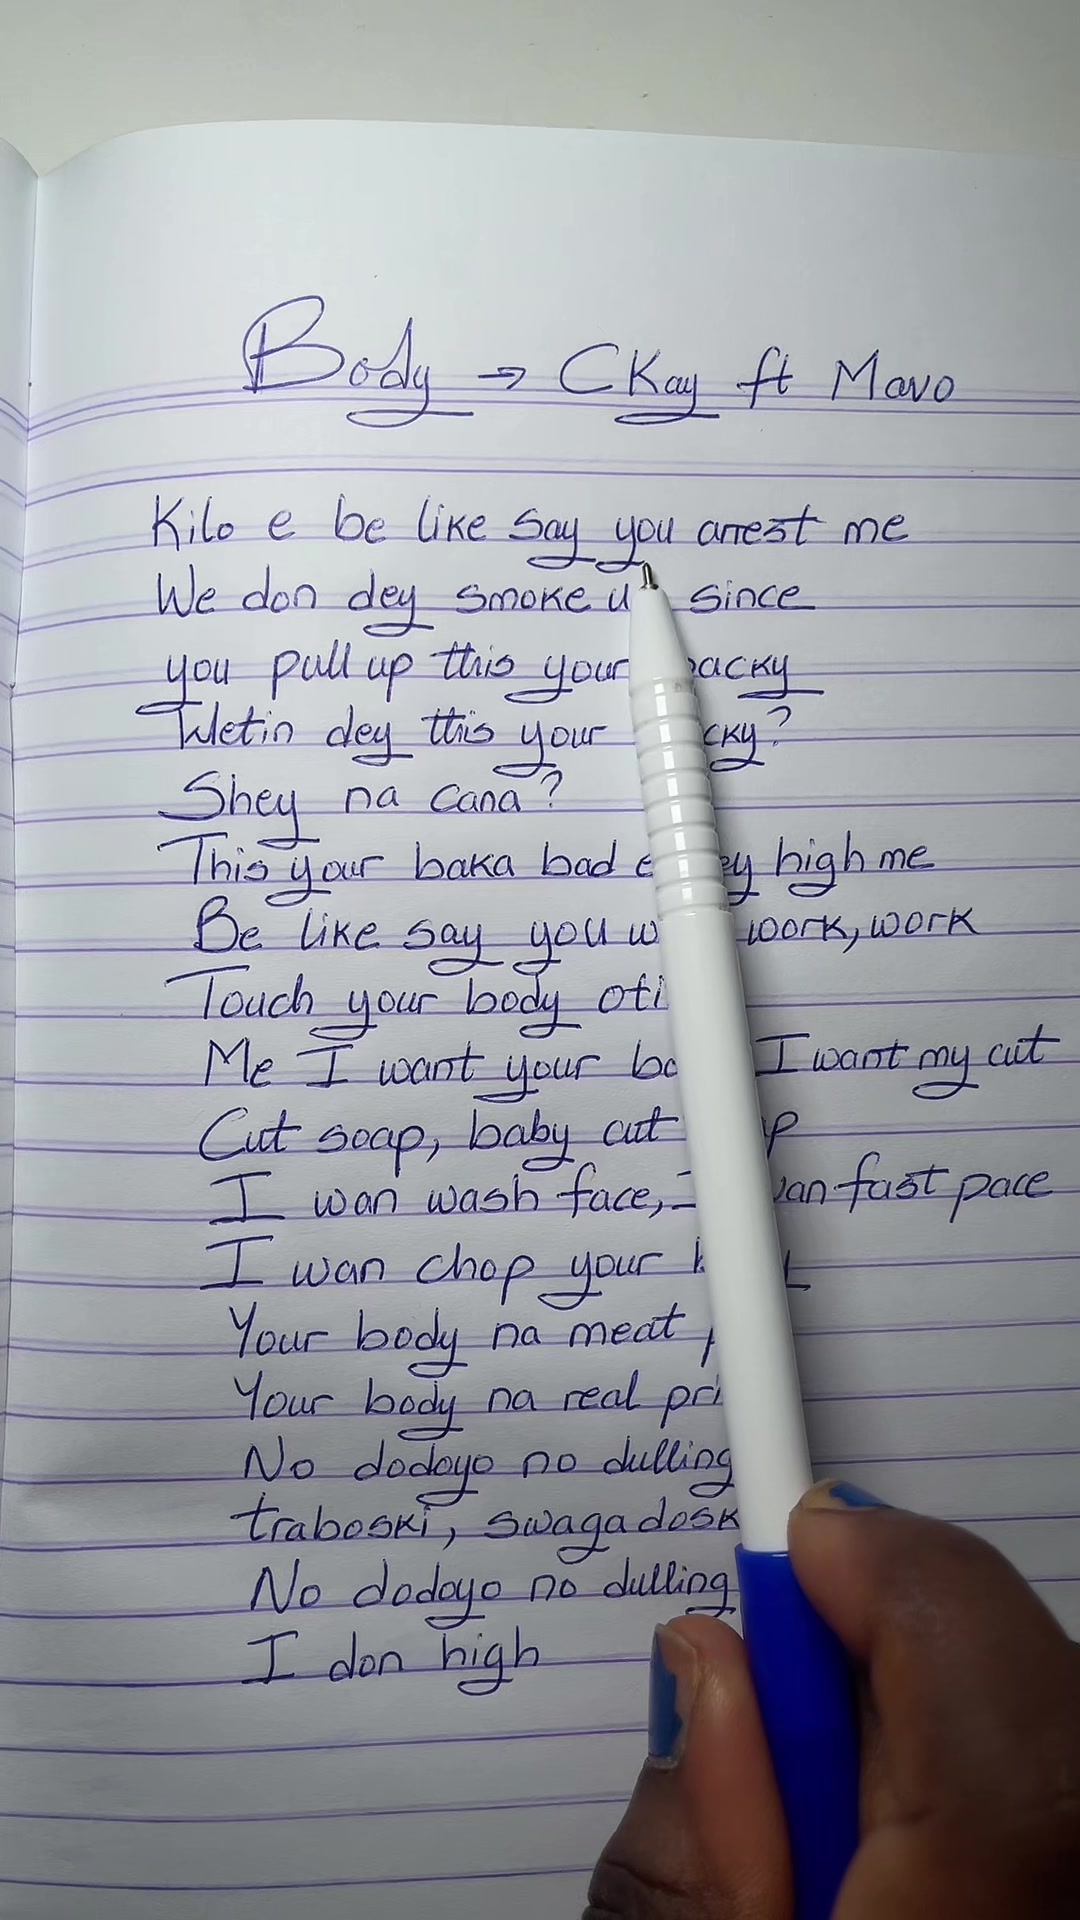 Body → CKay ft Mavo
Kilo e be like say you arrest me
We don dey smoke since
you pull up this your
Wetin dey this your
Shey na cana?
This your baka bad high me
Be like say you work, work
Touch your body
Me I want your I want my cut
Cut soap, baby cut
I wan wash face, fast pace
I wan chop your
Your body na meat
Your body na real
No dodoyo no dulling
traboski,
No dodoyo no dulling
I don high